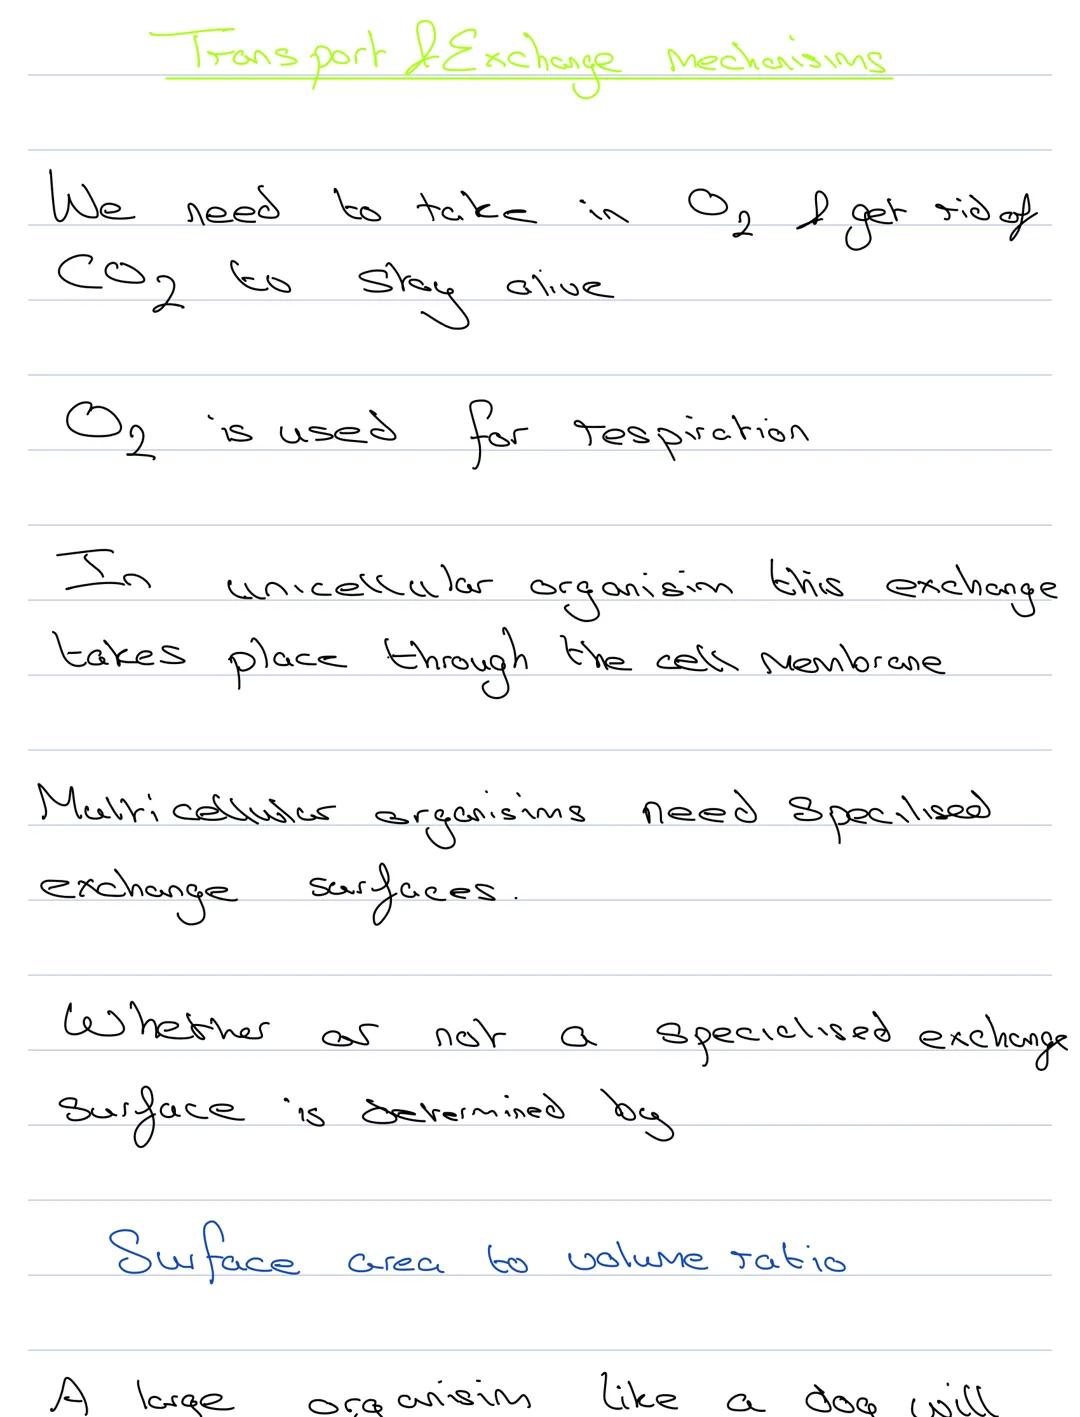 Transport & Exchange mechanisims
We need to take in O₂ & get rid of
CO₂ to stay alive
O₂ is used for respiration
In unicellular organisim this exchange
takes place through the cell membrane
Multicellular organisims need specilised
exchange surfaces.
Whether or not a specialised exchange
surface is determined by
Surface area to volume ratio
A large organisim like a dog will